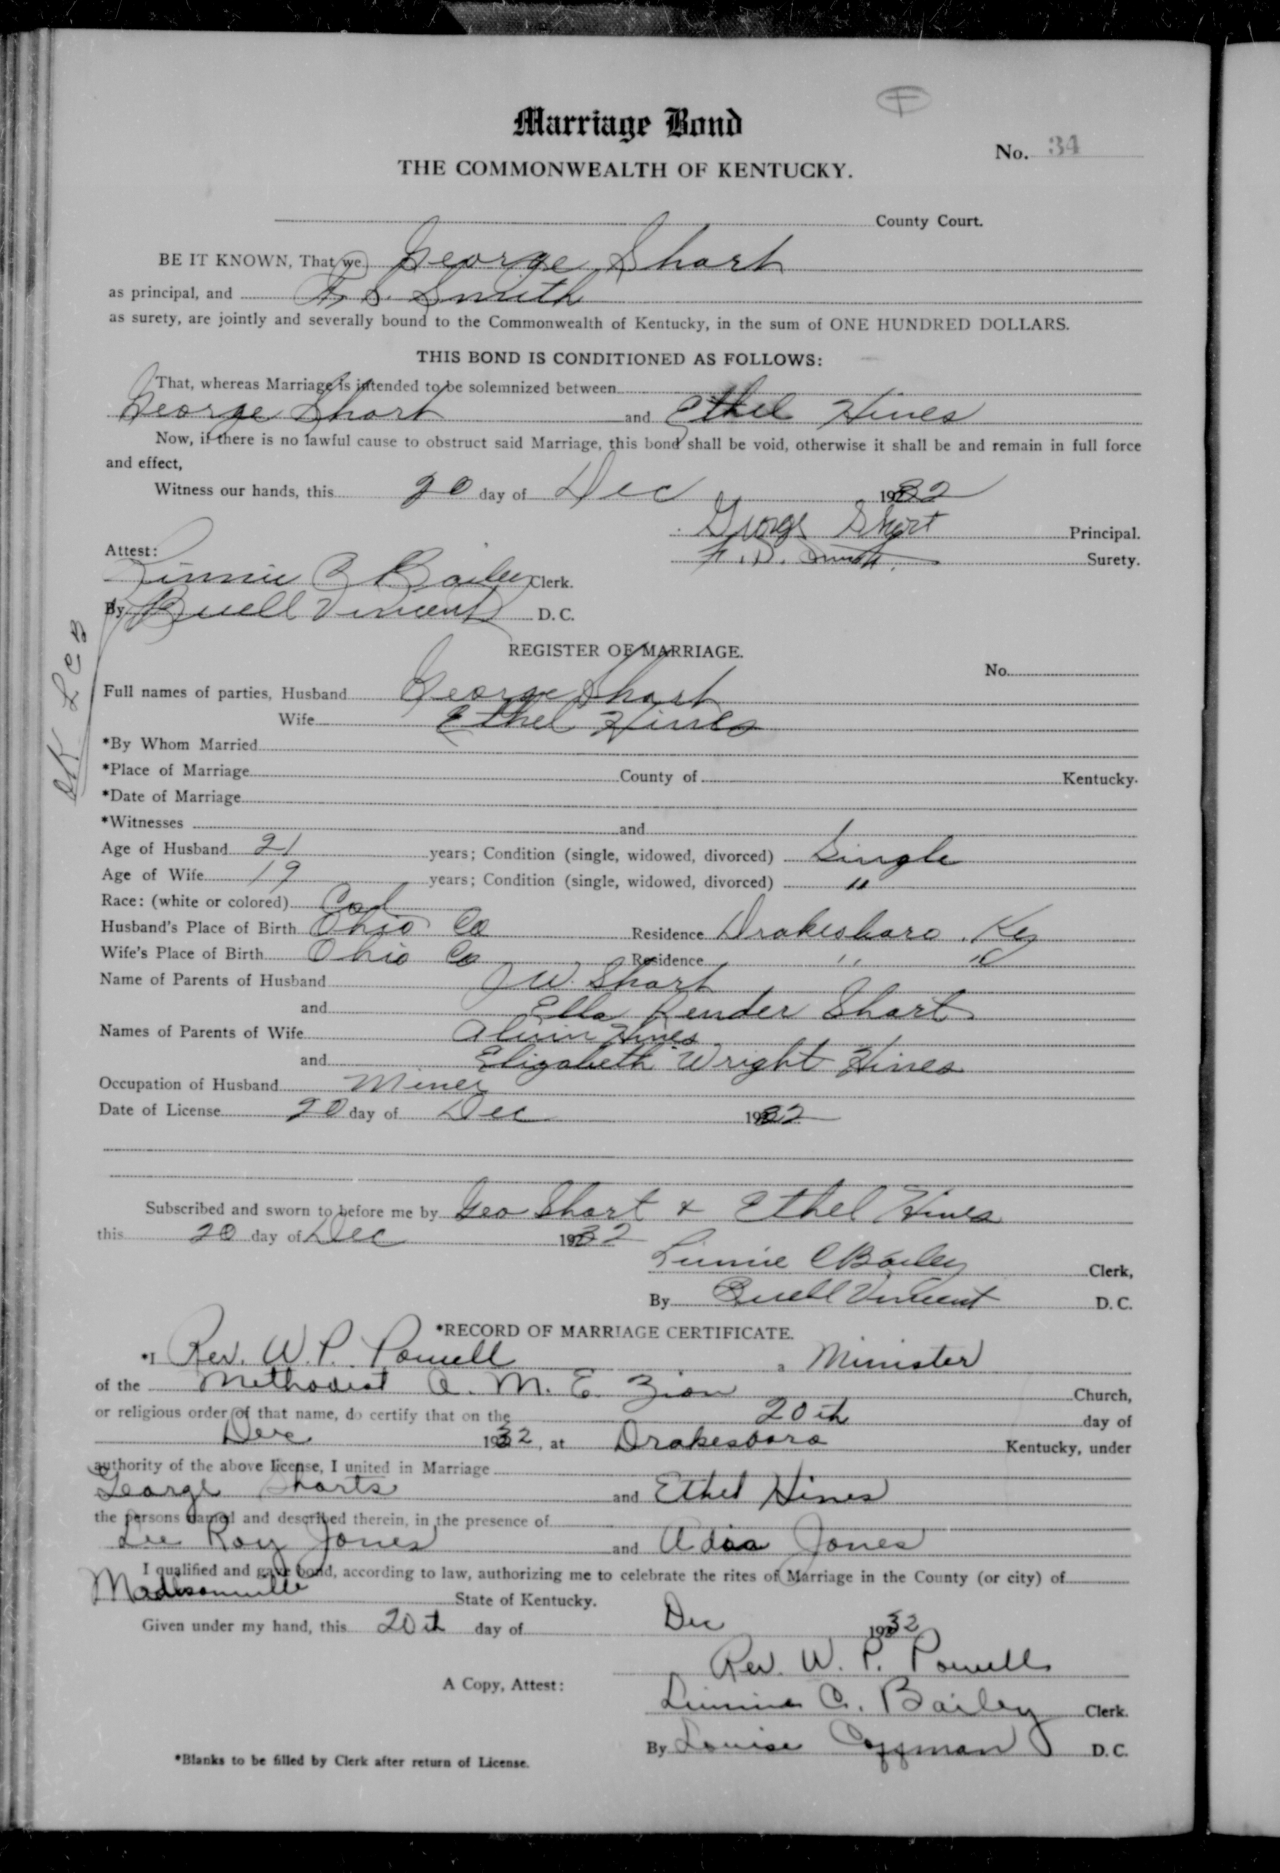 F
Marriage Bond
No. 34
THE COMMONWEALTH OF KENTUCKY.
County Court.
BE IT KNOWN, That we, George Short
as principal, and F. D. Smith
as surety, are jointly and severally bound to the Commonwealth of Kentucky, in the sum of ONE HUNDRED DOLLARS.
THIS BOND IS CONDITIONED AS FOLLOWS:
That, whereas Marriage is intended to be solemnized between
George Short and Ethel Hines
Now, if there is no lawful cause to obstruct said Marriage, this bond shall be void, otherwise it shall be and remain in full force
and effect,
Witness our hands, this 20 day of Dec 1932
George Short Principal.
F. D. Smith. Surety.
Attest:
Linnie C Bailey Clerk.
By Buell Vincent D. C.
OK
REGISTER OF MARRIAGE.
No.
Full names of parties, Husband George Short
Wife Ethel Hines
*By Whom Married
*Place of Marriage County of Kentucky.
*Date of Marriage
*Witnesses and
Age of Husband 21 years; Condition (single, widowed, divorced) Single
Age of Wife 19 years; Condition (single, widowed, divorced) "
Race: (white or colored) Col
Husband's Place of Birth Ohio Co Residence Drakesboro, Ky
Wife's Place of Birth Ohio Co Residence " "
Name of Parents of Husband J W. Short
and Ella Render Short
Names of Parents of Wife Alvin Hines
and Elizabeth Wright Hines
Occupation of Husband Miner
Date of License 20 day of Dec 1932
Subscribed and sworn to before me by Geo Short & Ethel Hines
this 20 day of Dec 1932
Linnie C Bailey Clerk,
By Buell Vincent D. C.
*RECORD OF MARRIAGE CERTIFICATE.
*I Rev. W. P. Powell a Minister
of the Methodist A. M. E. Zion Church,
or religious order of that name, do certify that on the 20th day of
Dec 1932, at Drakesboro Kentucky, under
authority of the above license, I united in Marriage
George Shorts and Ethel Hines
the persons named and described therein, in the presence of
Lee Roy Jones and Adia Jones
I qualified and gave bond, according to law, authorizing me to celebrate the rites of Marriage in the County (or city) of
Madisonville State of Kentucky.
Given under my hand, this 20th day of Dec 1932
Rev. W. P. Powell
A Copy, Attest: Linnie C. Bailey Clerk.
By Louise Coffman D. C.
*Blanks to be filled by Clerk after return of License.